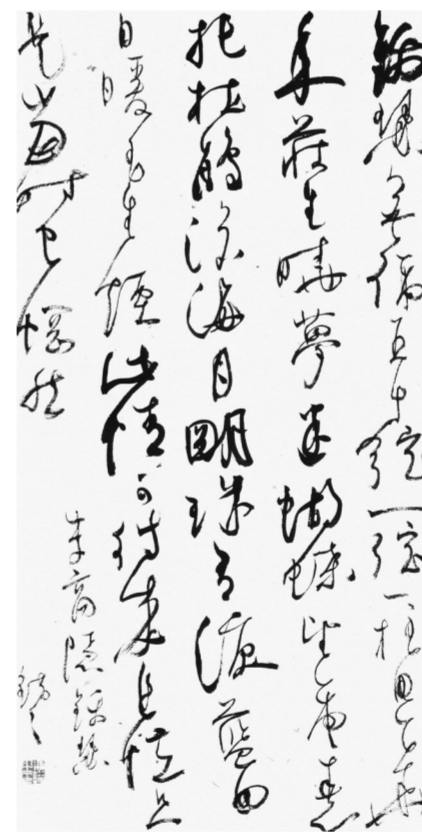 錦瑟無端五十弦一弦一柱思華
年莊生曉夢迷蝴蝶望帝春心
托杜鵑滄海月明珠有淚藍田
日暖玉生煙此情可待成追憶只
是當時已惘然
李商隱錦瑟